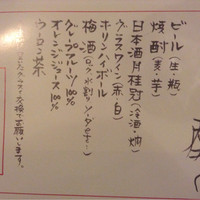 ビール(生・瓶)
焼酎(麦・芋)
日本酒月桂冠(冷酒・燗)
グラスワイン(赤・白)
ホリンハイボール
梅酒(ロック、水割、ソーダ
グレープフルーツ100%
オレンジジュース100%
ウーロン茶
グラス交換でお願いします。